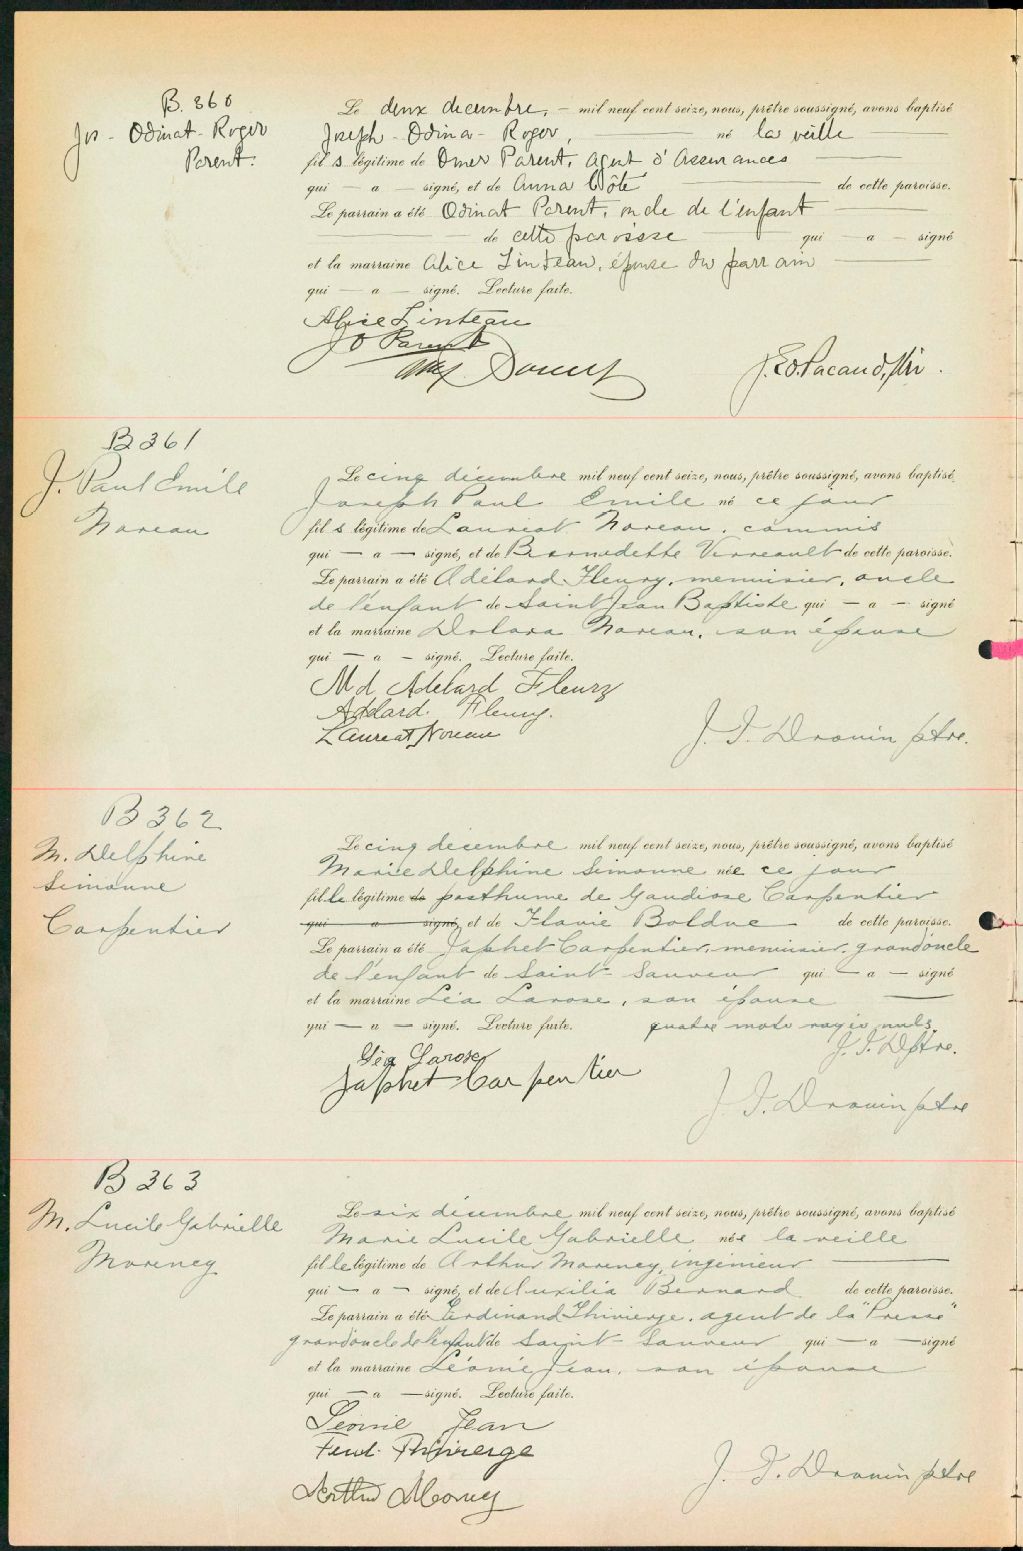 B. 360
Jos - Odinat - Roger
Parent.
Le deux decembre, - mil neuf cent seize, nous, prêtre soussigné, avons baptisé
Joseph - Odina - Roger, né la veille
fils légitime de Omer Parent, agent d'Assurances
qui - a - signé, et de Anna Côté de cette paroisse.
Le parrain a été Odinat Parent, oncle de l'enfant
de cette paroisse qui - a - signé
et la marraine Alice Linteau, épouse du parrain
qui - a - signé. Lecture faite.
Alice Linteau
J O Parent
J. Ed. Pacaud, Ptr.
B 361
J. Paul Emile
Noreau
Le cinq décembre mil neuf cent seize, nous, prêtre soussigné, avons baptisé
Joseph Paul Emile né ce jour
fils légitime de Lauréat Noreau, commis
qui - a - signé, et de Bernadette Verreault de cette paroisse.
Le parrain a été Adélard Fleury, menuisier, oncle
de l'enfant de Saint Jean Baptiste qui - a - signé
et la marraine Dolora Noreau, son épouse
qui - a - signé. Lecture faite.
Md Adelard Fleury
Adelard Fleury.
Laureat Noreau
J. F. Drouin ptre.
B 362
M. Delphine
Simonne
Carpentier
Le cinq decembre mil neuf cent seize, nous, prêtre soussigné, avons baptisé
Marie Delphine Simonne née ce jour
fille légitime de posthume de Gaudiose Carpentier
qui a signé, et de Flavie Bolduc de cette paroisse.
Le parrain a été Japhet Carpentier, menuisier, grandoncle
de l'enfant de Saint-Sauveur qui - a - signé
et la marraine Léa Larose, son épouse
qui - a - signé. Lecture faite. quatre mots rayés nuls.
J. F. D ptre.
Léa Larose
Japhet Carpentier
J. F. Drouin ptre
B 363
M. Lucile Gabrielle
Morency
Le six décembre mil neuf cent seize, nous, prêtre soussigné, avons baptisé
Marie Lucile Gabrielle née la veille
fille légitime de Arthur Morency, ingénieur
qui - a - signé, et de Auxilia Bernard de cette paroisse.
Le parrain a été Ferdinand Thivierge, agent de la "Presse"
grandoncle de l'enfant de Saint-Sauveur qui - a - signé
et la marraine Léonie Jean, son épouse
qui - a - signé. Lecture faite.
Leonie Jean
Ferd. Thivierge
Arthur Morency
J. F. Drouin ptre